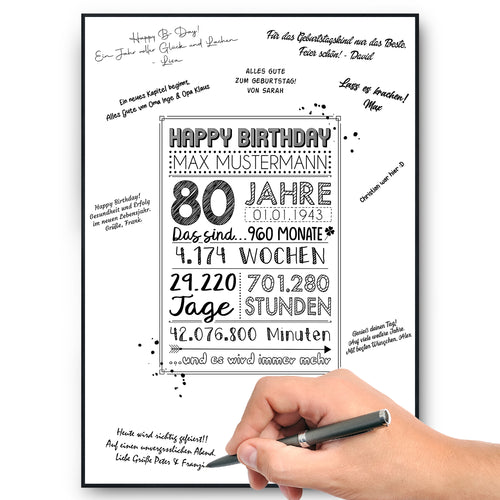 Happy B-Day!
Ein Jahr voller Glück und Lachen
- Lisa
Für das Geburtstagskind nur das Beste.
Feier schön! - David
ALLES GUTE
ZUM GEBURTSTAG!
VON SARAH
Lass es krachen!
Max
Ein neues Kapitel beginnt,
Alles Gute von Oma Inge & Opa Klaus
HAPPY BIRTHDAY
MAX MUSTERMANN
80 JAHRE
01.01.1943
Das sind... 960 MONATE
4.174 WOCHEN
29.220 Tage
701.280 STUNDEN
42.076.800 Minuten
...und es wird immer mehr
Christian war hier :-D
Happy Birthday!
Gesundheit und Erfolg
im neuen Lebensjahr.
Grüße, Frank.
Genieß deinen Tag!
Auf viele weitere Jahre.
Mit besten Wünschen, Alex
Heute wird richtig gefeiert!!
Auf einen unvergesslichen Abend.
Liebe Grüße Peter & Franzi